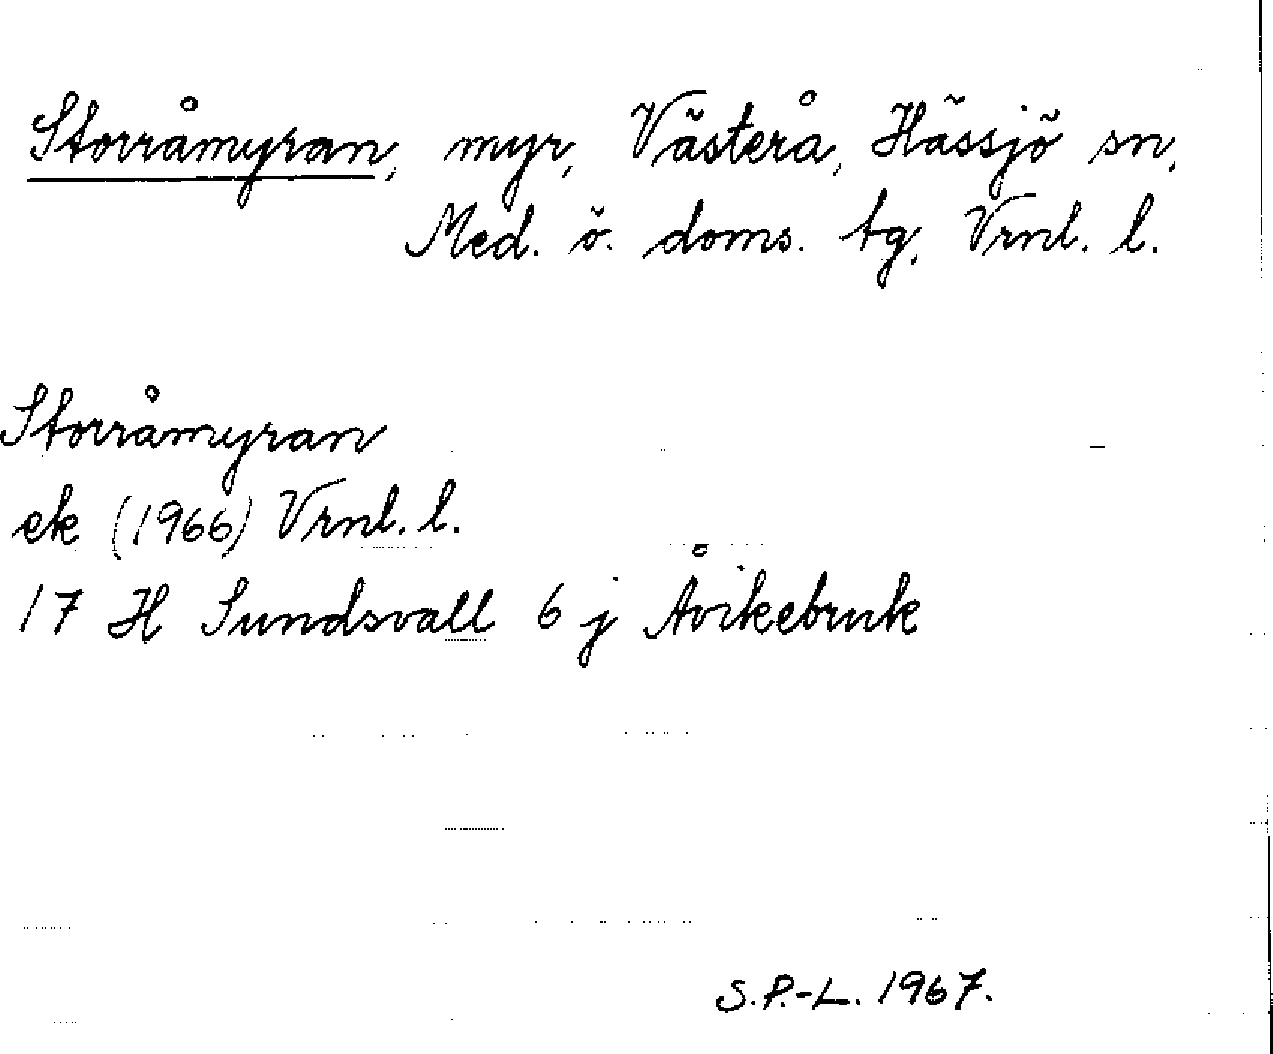 Storråmyran, myr, Västerå, Hässjö sn,
Med. ö. doms. tg, Vrnl. l.
Storråmyran
ek (1966) Vrnl. l.
17 H Sundsvall 6 j Åvikebruk
S.P.-L. 1967.